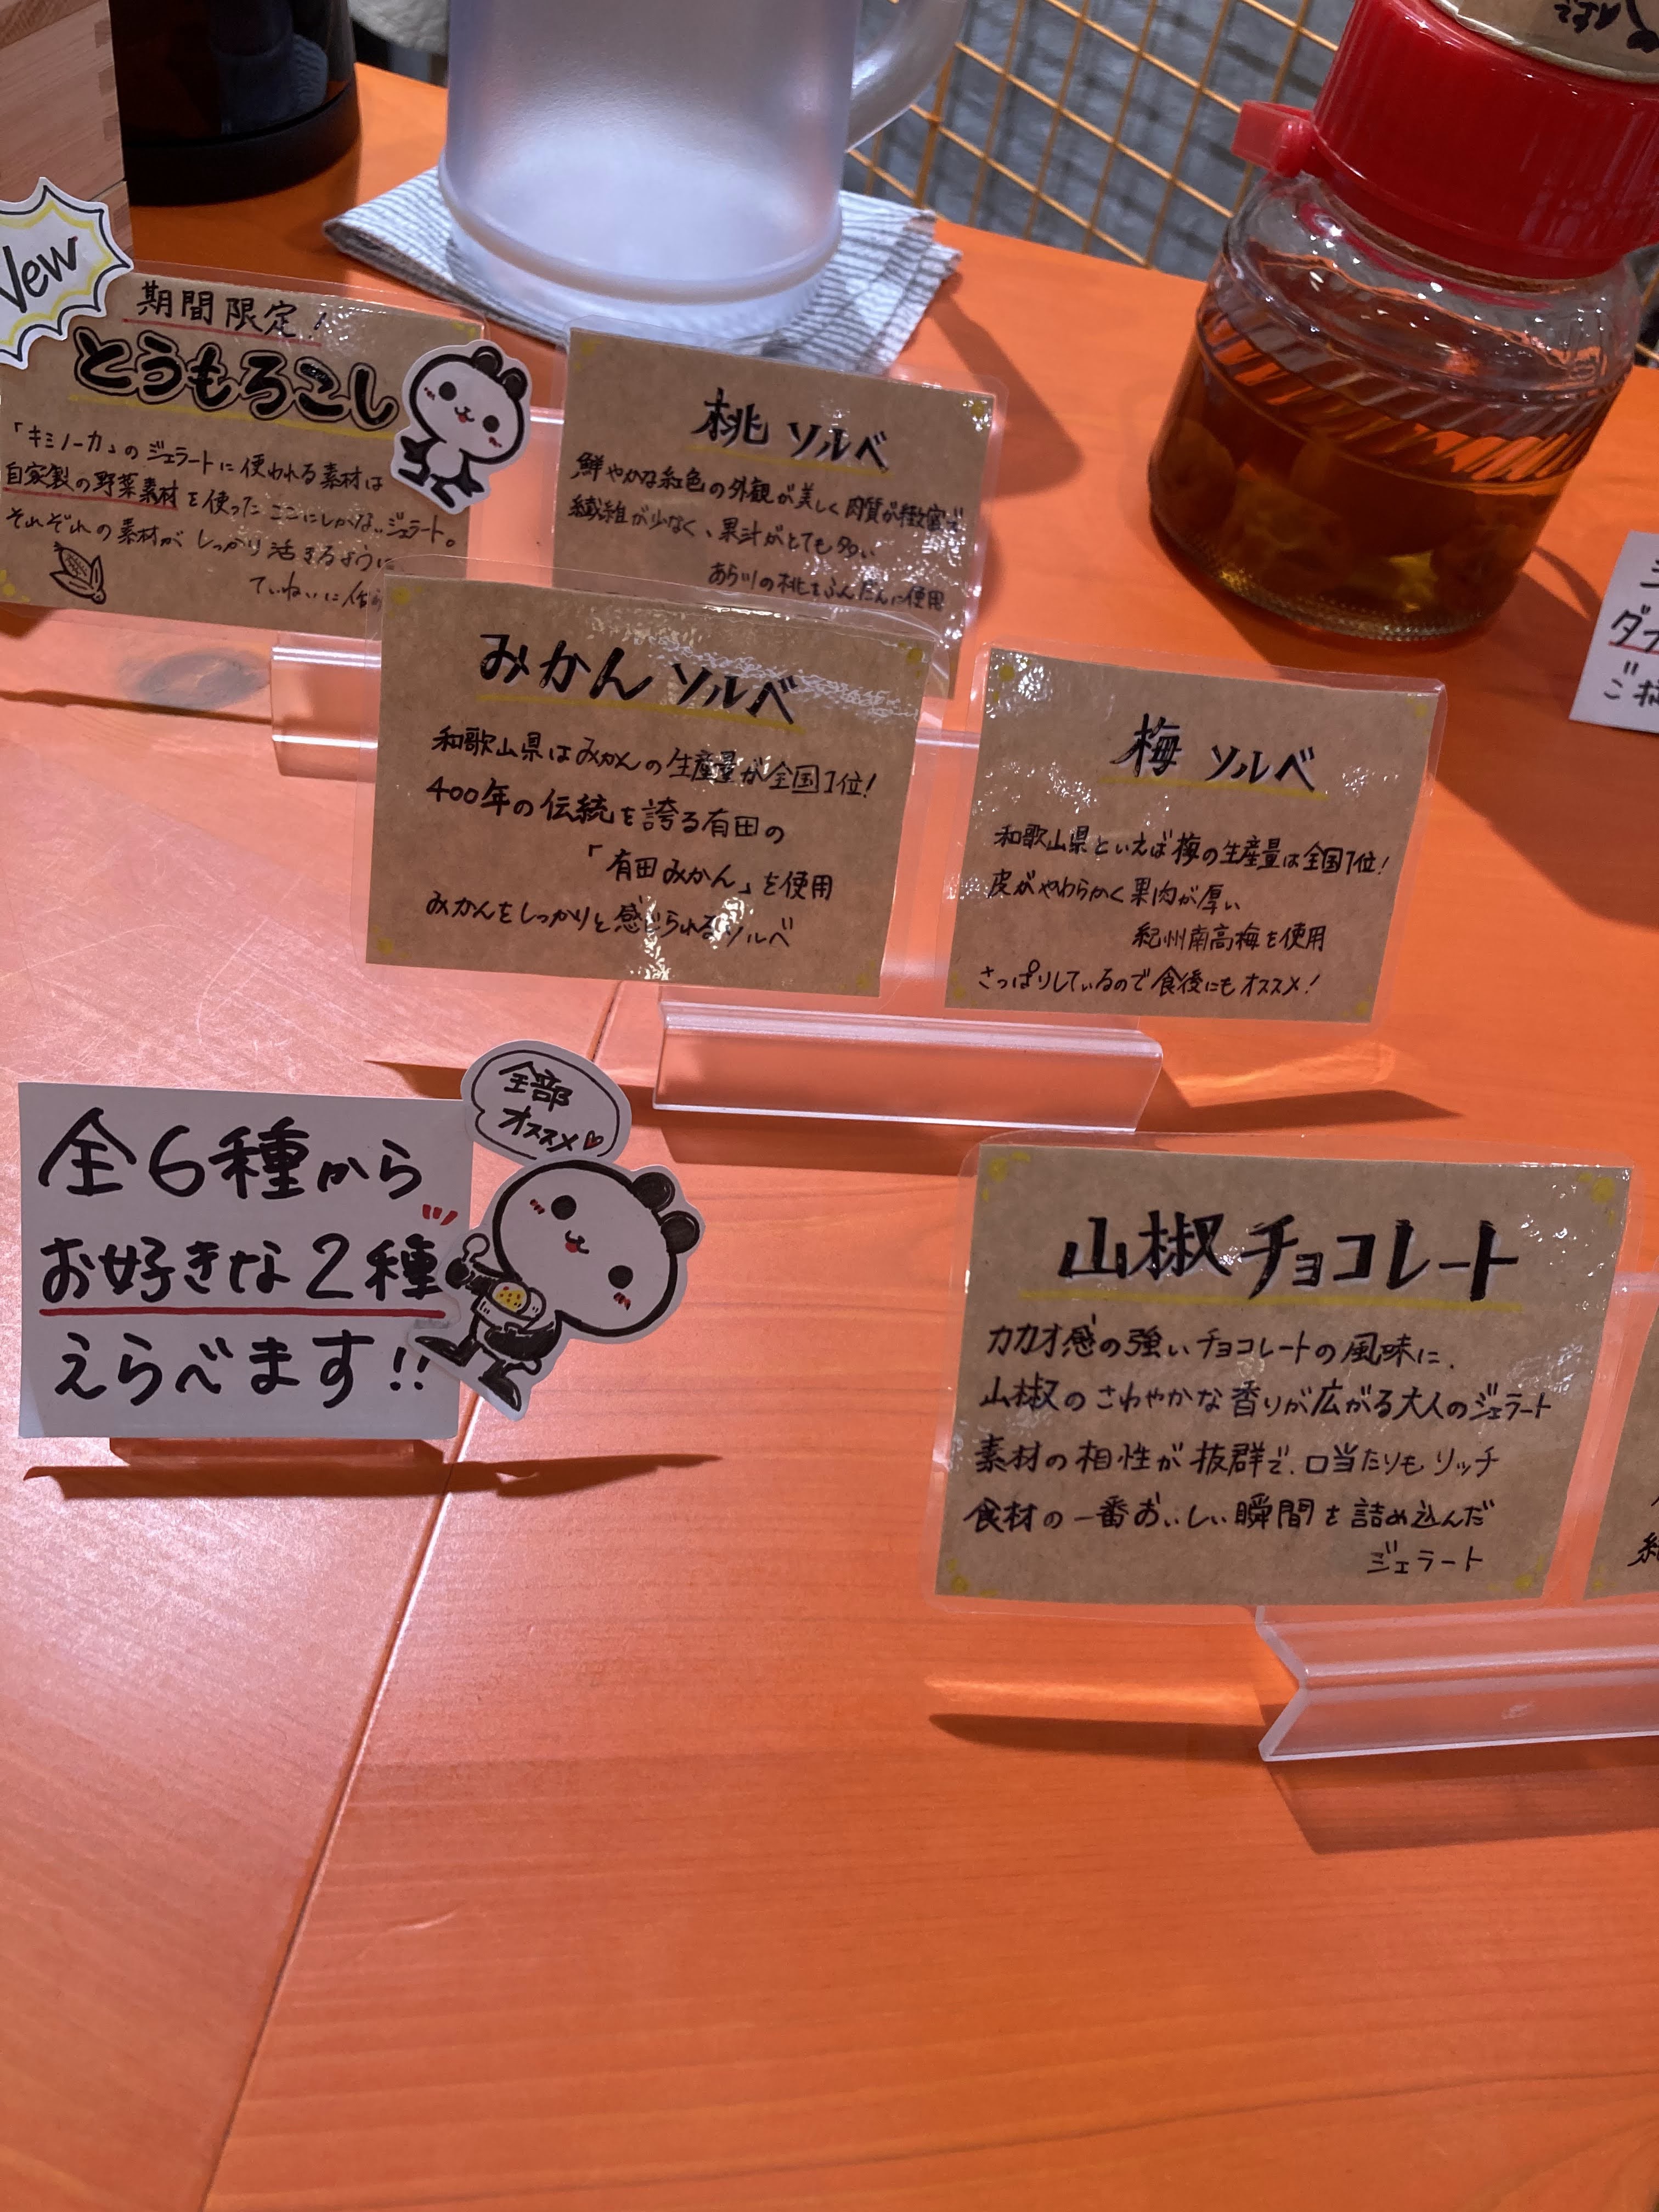 New
期間限定!
とうもろこし
「キミノーカ」のジェラートに使われる素材は
自家製の野菜素材を使ったここにしかないジェラート。
それぞれの素材がしっかり活きるように
ていねいに
桃 ソルベ
鮮やかな紅色の外観が美しく肉質が緻密で
繊維が少なく、果汁がとても多い
あら川の桃をふんだんに使用
みかん ソルベ
和歌山県はみかんの生産量が全国1位!
400年の伝統を誇る有田の
「有田みかん」を使用
みかんをしっかりと感じられるソルベ
梅 ソルベ
和歌山県といえば梅の生産量は全国1位!
皮がやわらかく果肉が厚い
紀州南高梅を使用
さっぱりしているので食後にもオススメ!
全部
オススメ♡
全6種から
お好きな2種
えらべます!!
山椒チョコレート
カカオ感の強いチョコレートの風味に、
山椒のさわやかな香りが広がる大人のジェラート
素材の相性が抜群で、口当たりもリッチ
食材の一番おいしい瞬間を詰め込んだ
ジェラート